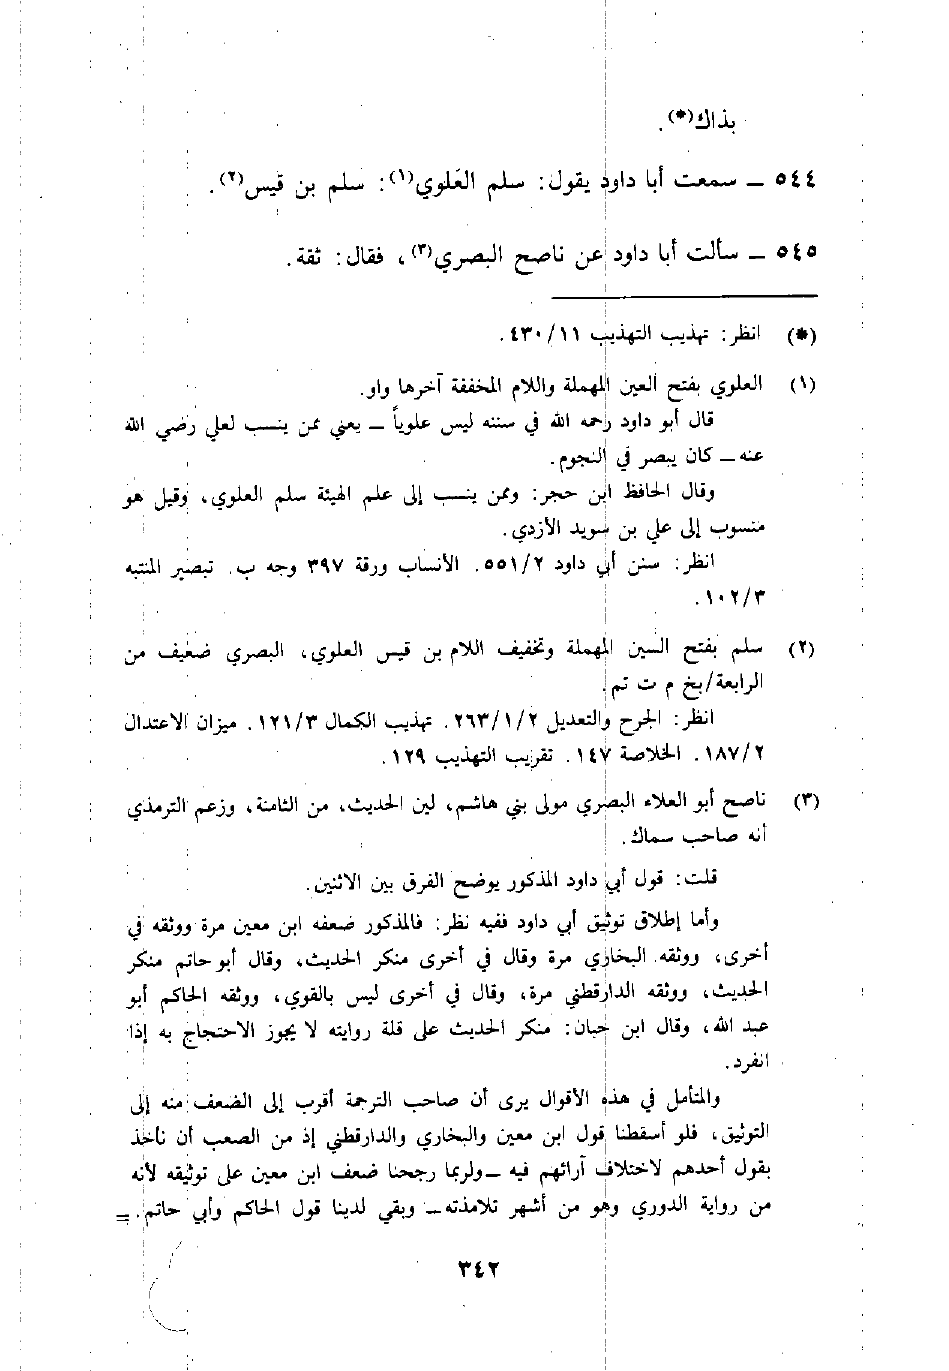 بذاك(*).
٥٤٤ ـ سمعت أبا داود يقول: سلم العَلوي(١): سلم بن قيس(٢).
٥٤٥ ـ سألت أبا داود عن ناصح البصري(٣)، فقال: ثقة.
(*) انظر: تهذيب التهذيب ٤٣٠/١١.
(١) العلوي بفتح العين المهملة واللام المخففة آخرها واو.
قال أبو داود رحمه الله في سننه ليس علوياً ـ يعني ممن ينسب لعلي رضي الله
عنه ـ كان يبصر في النجوم.
وقال الحافظ ابن حجر: وممن ينسب إلى علم الهيئة سلم العلوي، وقيل هو
منسوب إلى علي بن سويد الأزدي.
انظر: سنن أبي داود ٥٥١/٢. الأنساب ورقة ٣٩٧ وجه ب. تبصير المنتبه
١٠٢/٣.
(٢) سلم بفتح السين المهملة وتخفيف اللام بن قيس العلوي، البصري ضعيف من
الرابعة/بخ م ت تم.
انظر: الجرح والتعديل ٢٦٣/١/٢. تهذيب الكمال ١٢١/٣. ميزان الاعتدال
١٨٧/٢. الخلاصة ١٤٧. تقريب التهذيب ١٢٩.
(٣) ناصح أبو العلاء البصري مولى بني هاشم، لين الحديث، من الثامنة، وزعم الترمذي
أنه صاحب سماك.
قلت: قول أبي داود المذكور يوضح الفرق بين الاثنين.
وأما إطلاق توثيق أبي داود ففيه نظر: فالمذكور ضعفه ابن معين مرة ووثقه في
أخرى، ووثقه البخاري مرة وقال في أخرى منكر الحديث، وقال أبو حاتم منكر
الحديث، ووثقه الدارقطني مرة، وقال في أخرى ليس بالقوي، ووثقه الحاكم أبو
عبد الله، وقال ابن حبان: منكر الحديث على قلة روايته لا يجوز الاحتجاج به إذا
انفرد.
والمتأمل في هذه الأقوال يرى أن صاحب الترجمة أقرب إلى الضعف منه إلى
التوثيق، فلو أسقطنا قول ابن معين والبخاري والدارقطني إذ من الصعب أن نأخذ
بقول أحدهم لاختلاف آرائهم فيه ـ ولربما رجحنا ضعف ابن معين على توثيقه لأنه
من رواية الدوري وهو من أشهر تلامذته ـ وبقي لدينا قول الحاكم وأبي حاتم. =
٣٤٢